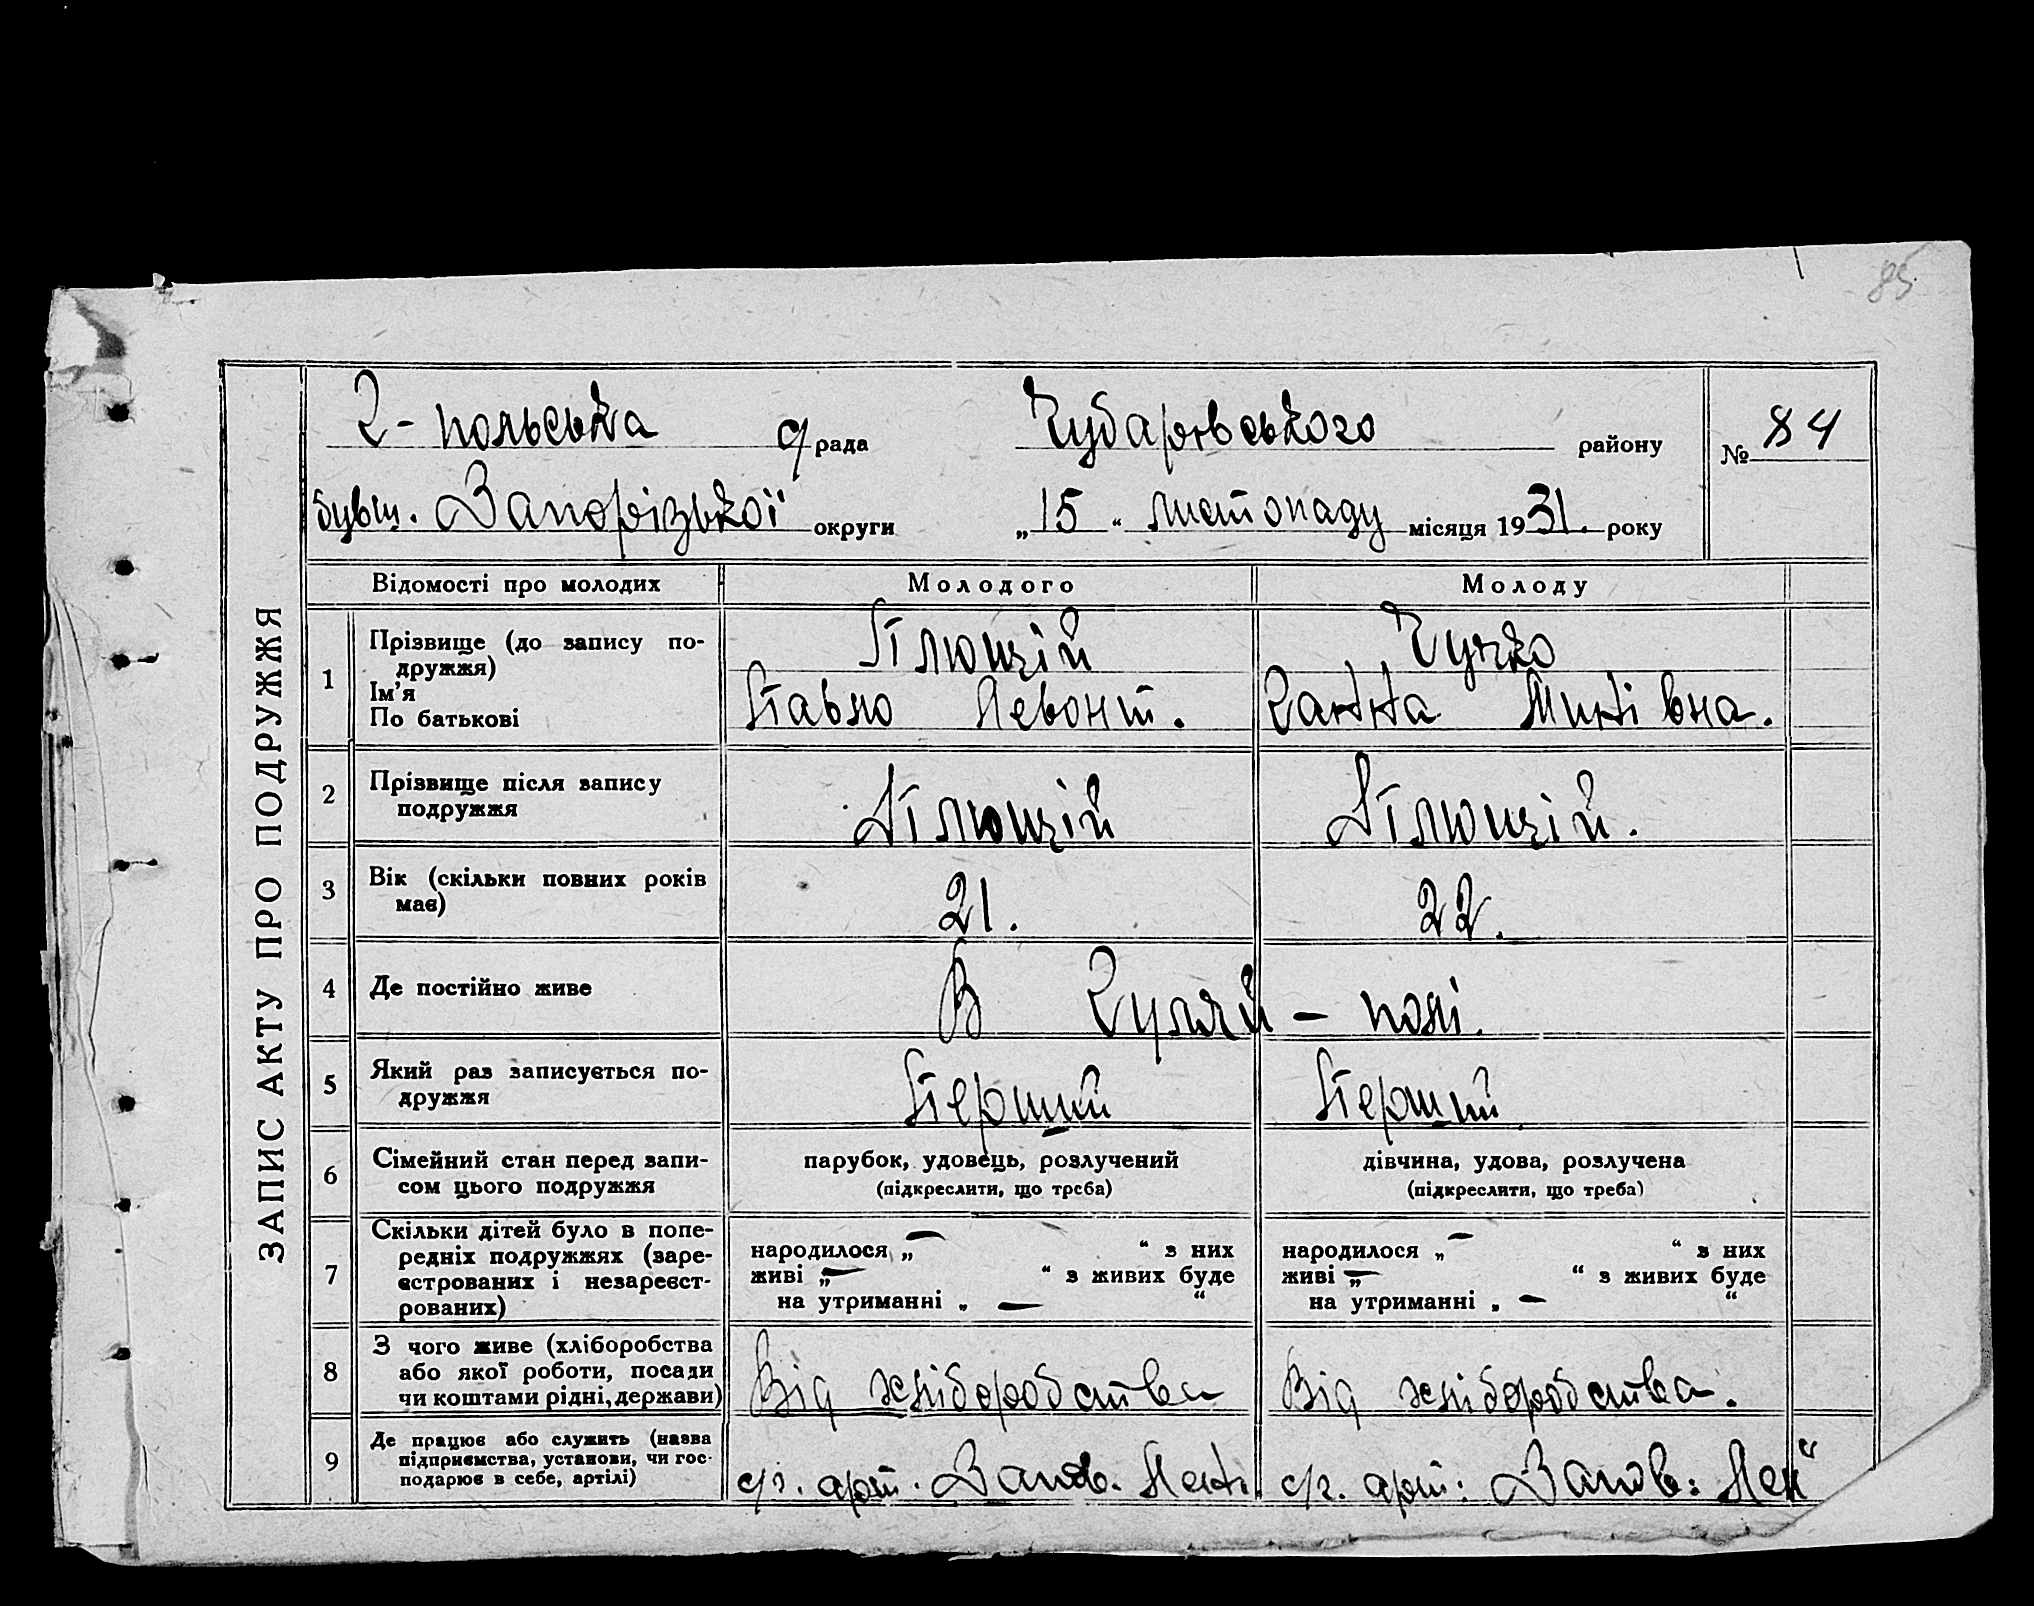 85
ЗАПИС АКТУ ПРО ПОДРУЖЖЯ
Г-польська с/рада Чубарівського району № 84
бувш. Запорізької округи „15“ листопаду місяця 1931. року
Відомості про молодих Молодого Молоду
1 Прізвище (до запису по-
дружжя)
Ім’я
По батькові
Плющій Гучко
Павло Левонт. Ганна Миківна.
2 Прізвище після запису
подружжя
Плющій Плющій.
3 Вік (скільки повних років
має)
21. 22.
4 Де постійно живе В Гуляй – полі.
5 Який раз записується по-
дружжя
Перший Перший
6 Сімейний стан перед запи-
сом цього подружжя
парубок, удовець, розлучений дівчина, удова, розлучена
(підкреслити, що треба) (підкреслити, що треба)
7 Скільки дітей було в попе-
редніх подружжях (заре-
єстрованих і незареєст-
рованих)
народилося „ — “ з них народилося „ — “ з них
живі „ — “ з живих буде живі „ — “ з живих буде
на утриманні „ — “ на утриманні „ — “
8 З чого живе (хліборобства
або якої роботи, посади
чи коштами рідні, держави)
Від хліборобства Від хліборобства.
9 Де працює або служить (назва
підприємства, установи, чи гос-
подарює в себе, артілі)
с/г. арт. Запов. Лені. с/г. арт. Запов: Лен“